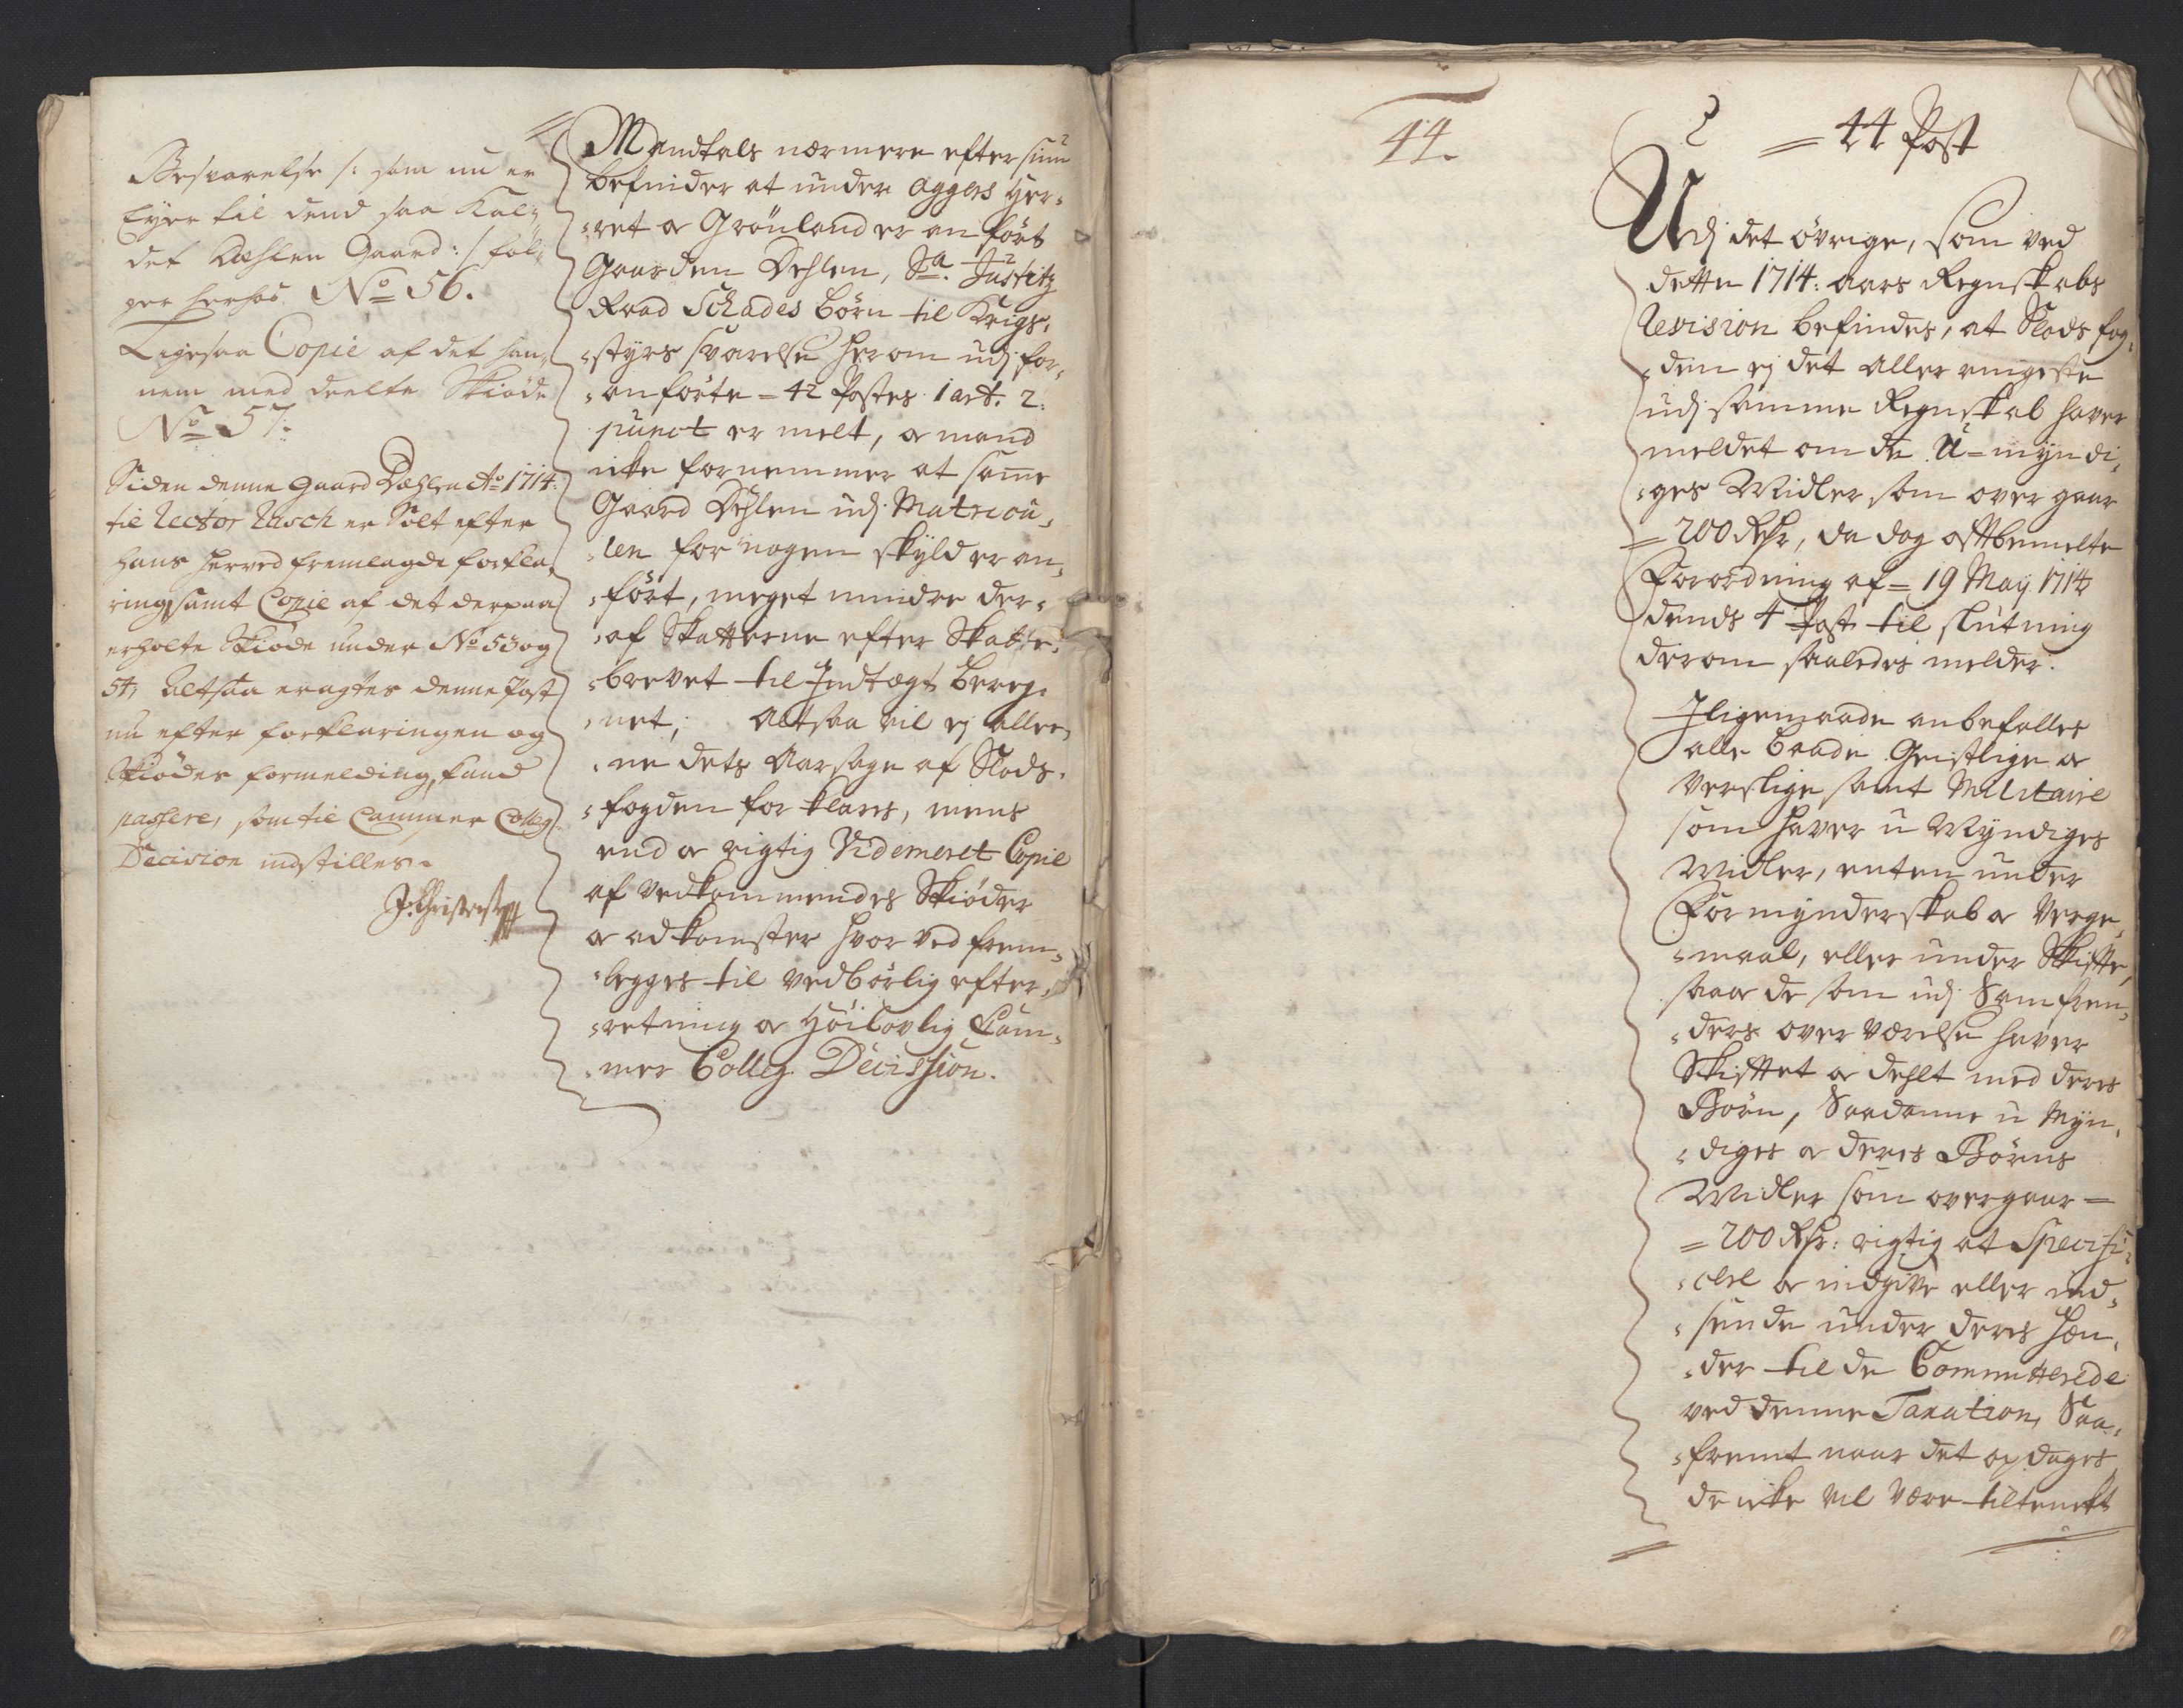 Besvarelse /: som nu er
Eyer til dend saa kal-
det Dæhlen Gaard :/ føl-
ger herhos No 56.
Ligesaa Copie af det han-
nem meddeelte Skiøde
No 57.
Siden denne gaard Dæhlen Ao 1714
til Rector Rosch er Solt efter
hans herved fremlagde forkla-
ring samt Copie af det derpaa
erholte Skiøde under No 53 og
54, Altsaa eragtes denne Post
nu efter forklaringen og
Skiødes formelding, kand
passere, som til Cammer Colleg.
Decision indstilles.
J. Christens
Mandtals nærmere eftersiun
befinder at under Aggers Her-
ret og Grønland er anført
Gaarden Dehlen, Sa. Justitz
Raad Schades børn til Krigs-
styrs svarelse herom udj for-
anførte 42 Postes 1 art. 2.
punct er melt, og mand
icke fornemmer at samme
Gaard Dehlen udj Matricu-
len for nogen skyld er an-
ført, meget mindre der-
af Skatterne efter Skatte-
brevet til Indtægt bereg-
net; Altsaa vil ej alle-
ne dets Aarsage af Slods-
fogden forklares, mens
end og rigtig Videmeret Copie
af vedkommendes Skiøder
og adkomster hvorved frem-
legges til vedbørlig efter-
retning og Høilovlig Cam-
mer Colleg. Decission.
44.
44 Post
Udj det øvrige, som ved
dette 1714: Aars Regnskabs
Revision befindes, at Slods fog-
den ej det Aller ringeste
udj samme Regnskab haver
meldet om de U-myndi-
ges Midler som over gaar
200 Rdr, da dog oftbemelte
Forordning af 19 May 1714
dends 4 Post til slutning
derom saaledes melder.
Iligemaade anbefalles
alle baade Geistlige og
Verslige samt Militaire
som haver u Myndiges
Midler, enten under
Formynderskab og Verge-
maal, eller under Skifte,
saa og de som udj Samfren-
ders overværelse haver
Skiftet og dehlt med deres
Børn, Saadanne u Myn-
diges og deres Børns
Midler som overgaar
200 Rdr: rigtig at Specifi-
cere og indgive eller ind-
sende under deres Hæn-
der til de Committerede
ved denne Taxation, Saa-
fremt naar det opdages
de icke vil være tiltenckt